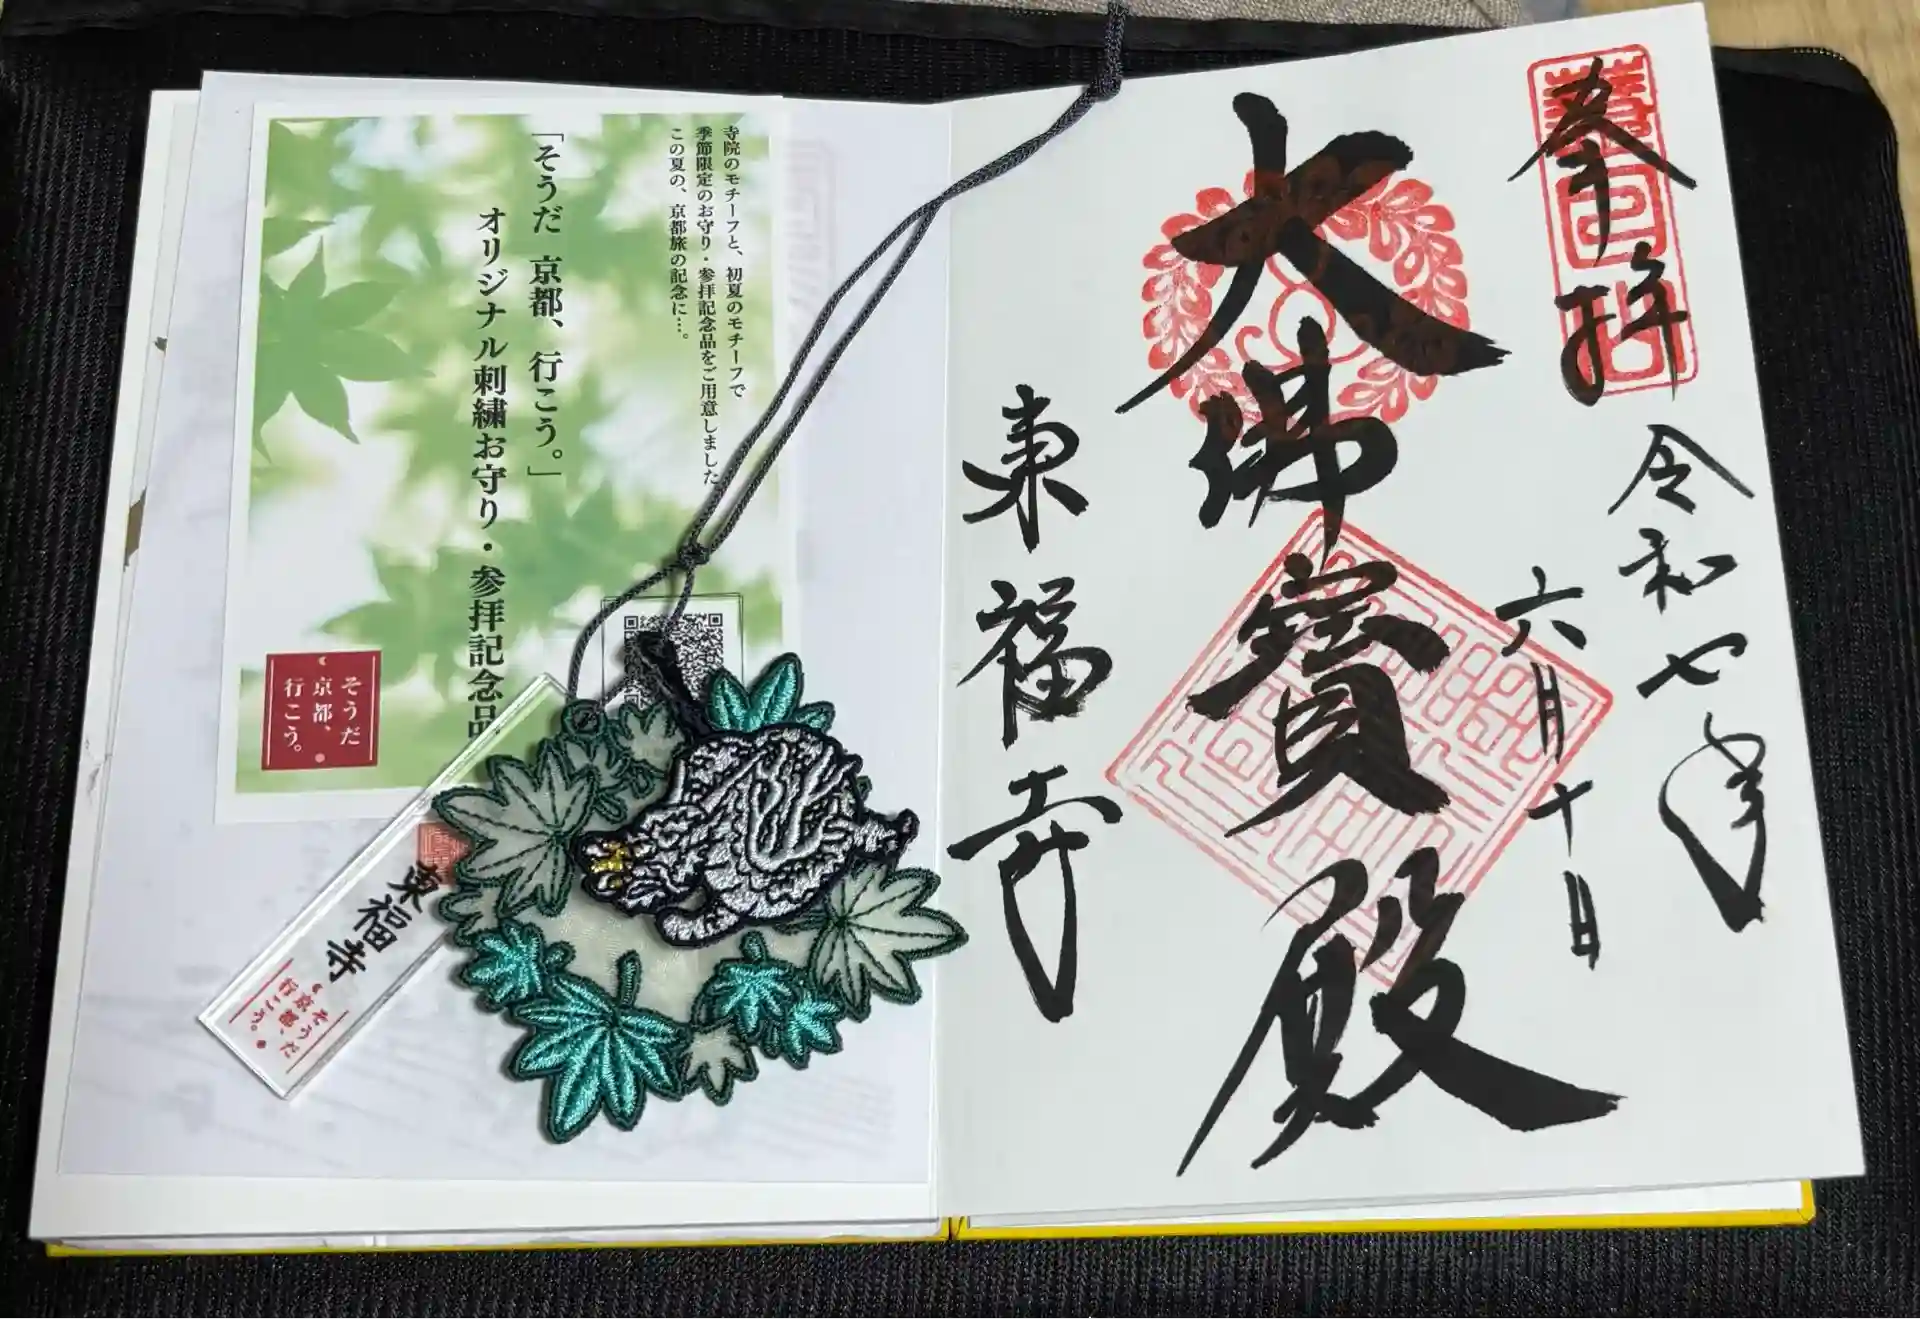 奉拝
令和七年
六月十日
大佛寳殿
東福寺
寺院のモチーフと、初夏のモチーフで
季節限定のお守り・参拝記念品をご用意しました
この夏の、京都旅の記念に…。
「そうだ 京都、行こう。」
オリジナル刺繍お守り・参拝記念品
そうだ
京都、
行こう。
東福寺
そうだ
京都、
行こう。